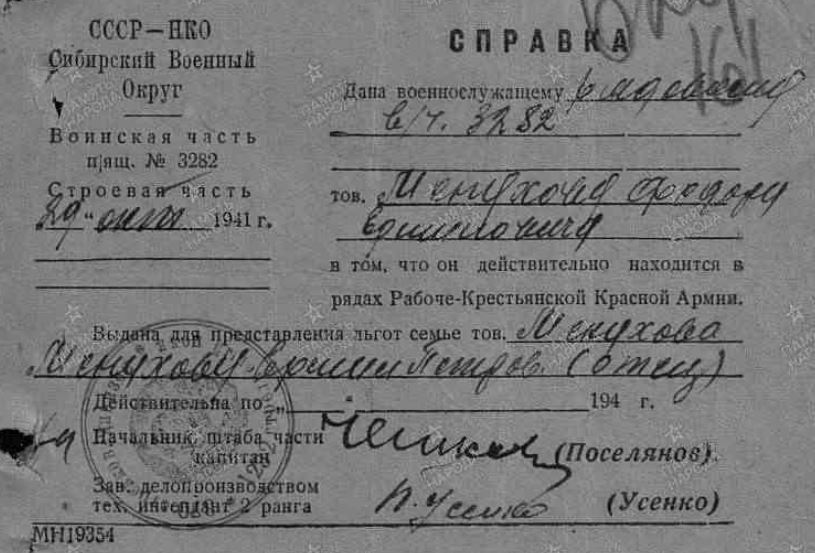 СССР—НКО
Сибирский Военный
Округ
Воинская часть
п|ящ. № 3282
Строевая часть
"29" 1941 г.
СПРАВКА
161
Дана военнослужащему рядовому
в/ч. 3282
тов. Менухову Федору
в том, что он действительно находится в
рядах Рабоче-Крестьянской Красной Армии.
Выдана для представления льгот семье тов. Менухова
Менухову Петров. (отец)
Действительна по „ 194 г.
Начальник штаба части
капитан (Поселянов).
Зав. делопроизводством
тех. интендант 2 ранга П. Усенко (Усенко)
МН19354
ПАМЯТЬ НАРОДА